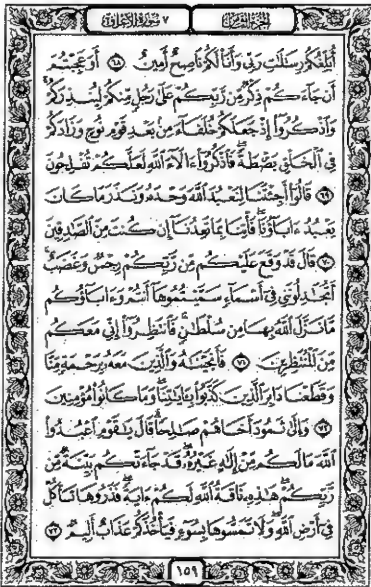 الجزء الثامن ٧ سورة الأعراف
أُبَلِّغُكُمْ رِسَالَاتِ رَبِّي وَأَنَا لَكُمْ نَاصِحٌ أَمِينٌ ٦٨ أَوَعَجِبْتُمْ
أَن جَاءَكُمْ ذِكْرٌ مِّن رَّبِّكُمْ عَلَىٰ رَجُلٍ مِّنكُمْ لِيُنذِرَكُمْ
وَاذْكُرُوا إِذْ جَعَلَكُمْ خُلَفَاءَ مِن بَعْدِ قَوْمِ نُوحٍ وَزَادَكُمْ
فِي الْخَلْقِ بَصْطَةً فَاذْكُرُوا آلَاءَ اللَّهِ لَعَلَّكُمْ تُفْلِحُونَ
٦٩ قَالُوا أَجِئْتَنَا لِنَعْبُدَ اللَّهَ وَحْدَهُ وَنَذَرَ مَا كَانَ
يَعْبُدُ آبَاؤُنَا فَأْتِنَا بِمَا تَعِدُنَا إِن كُنتَ مِنَ الصَّادِقِينَ
٧٠ قَالَ قَدْ وَقَعَ عَلَيْكُم مِّن رَّبِّكُمْ رِجْسٌ وَغَضَبٌ
أَتُجَادِلُونَنِي فِي أَسْمَاءٍ سَمَّيْتُمُوهَا أَنتُمْ وَآبَاؤُكُم
مَّا نَزَّلَ اللَّهُ بِهَا مِن سُلْطَانٍ فَانتَظِرُوا إِنِّي مَعَكُم
مِّنَ الْمُنتَظِرِينَ ٧١ فَأَنجَيْنَاهُ وَالَّذِينَ مَعَهُ بِرَحْمَةٍ مِّنَّا
وَقَطَعْنَا دَابِرَ الَّذِينَ كَذَّبُوا بِآيَاتِنَا وَمَا كَانُوا مُؤْمِنِينَ
٧٢ وَإِلَىٰ ثَمُودَ أَخَاهُمْ صَالِحًا قَالَ يَا قَوْمِ اعْبُدُوا
اللَّهَ مَا لَكُم مِّنْ إِلَٰهٍ غَيْرُهُ قَدْ جَاءَتْكُم بَيِّنَةٌ مِّن
رَّبِّكُمْ هَٰذِهِ نَاقَةُ اللَّهِ لَكُمْ آيَةً فَذَرُوهَا تَأْكُلْ
فِي أَرْضِ اللَّهِ وَلَا تَمَسُّوهَا بِسُوءٍ فَيَأْخُذَكُمْ عَذَابٌ أَلِيمٌ ٧٣
١٥٩